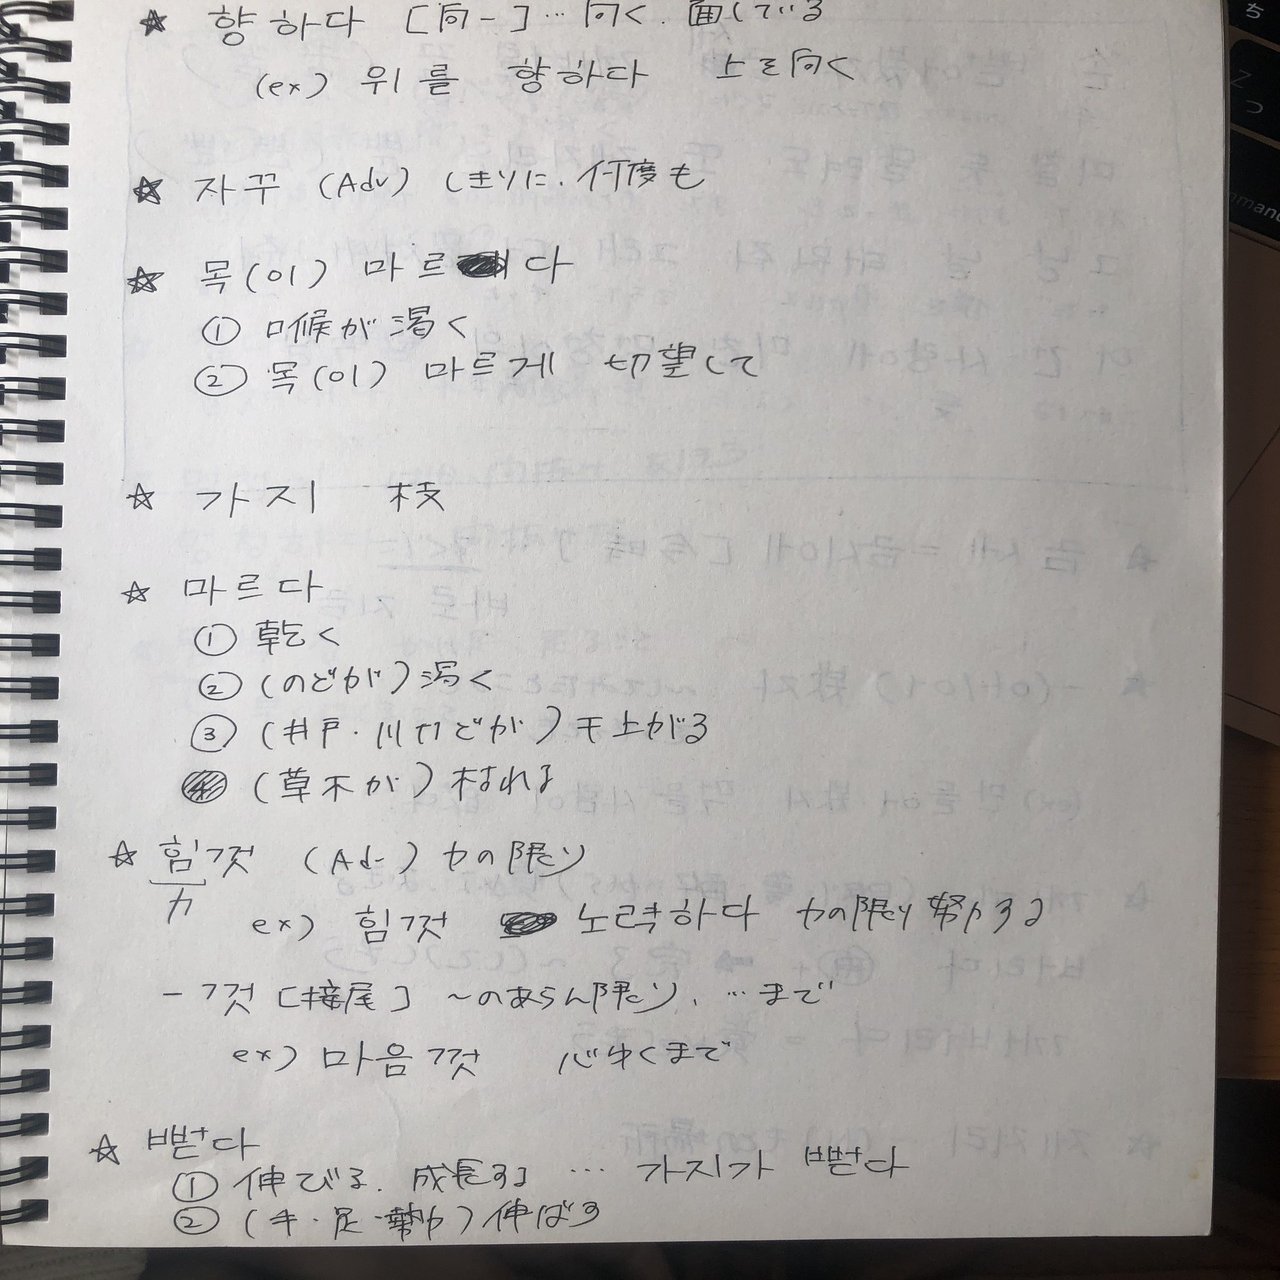 ☆ 향하다 [向-]… 向く. 面している
(ex) 위를 향하다 上を向く
☆ 자꾸 (Adv) しきりに. 何度も
☆ 목(이) 마르다
① 喉が渇く
② 목(이) 마르게 切望して
☆ 가지 枝
☆ 마르다
① 乾く
② (のどが) 渇く
③ (井戸・川などが) 干上がる
(草木が) 枯れる
☆ 힘껏 (Adv) 力の限り
力
ex) 힘껏 노력하다 力の限り努力する
-껏 [接尾] ~のあらん限り. …まで
ex) 마음껏 心ゆくまで
☆ 뻗다
① 伸びる. 成長する … 가지가 뻗다
② (手・足・勢力) 伸ばす